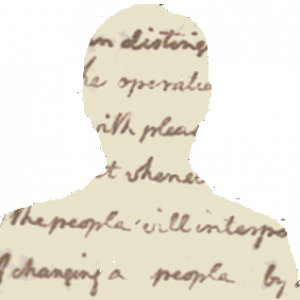 in disting
he operatio
with plea
t whenev
the people will interpo
of changing a people by